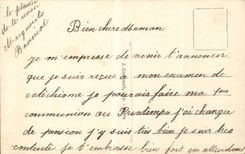 Bien chère Maman
je m'empresse de venir t'annoncer
que je suis reçue a mon examen de
catéchisme je pourais faire ma
communion au Printemps j'ai changé
de pension j'y suis très bien je suis très
contente je t'embrasse bien fort en attendant
le plaisir
de te
Marguerite